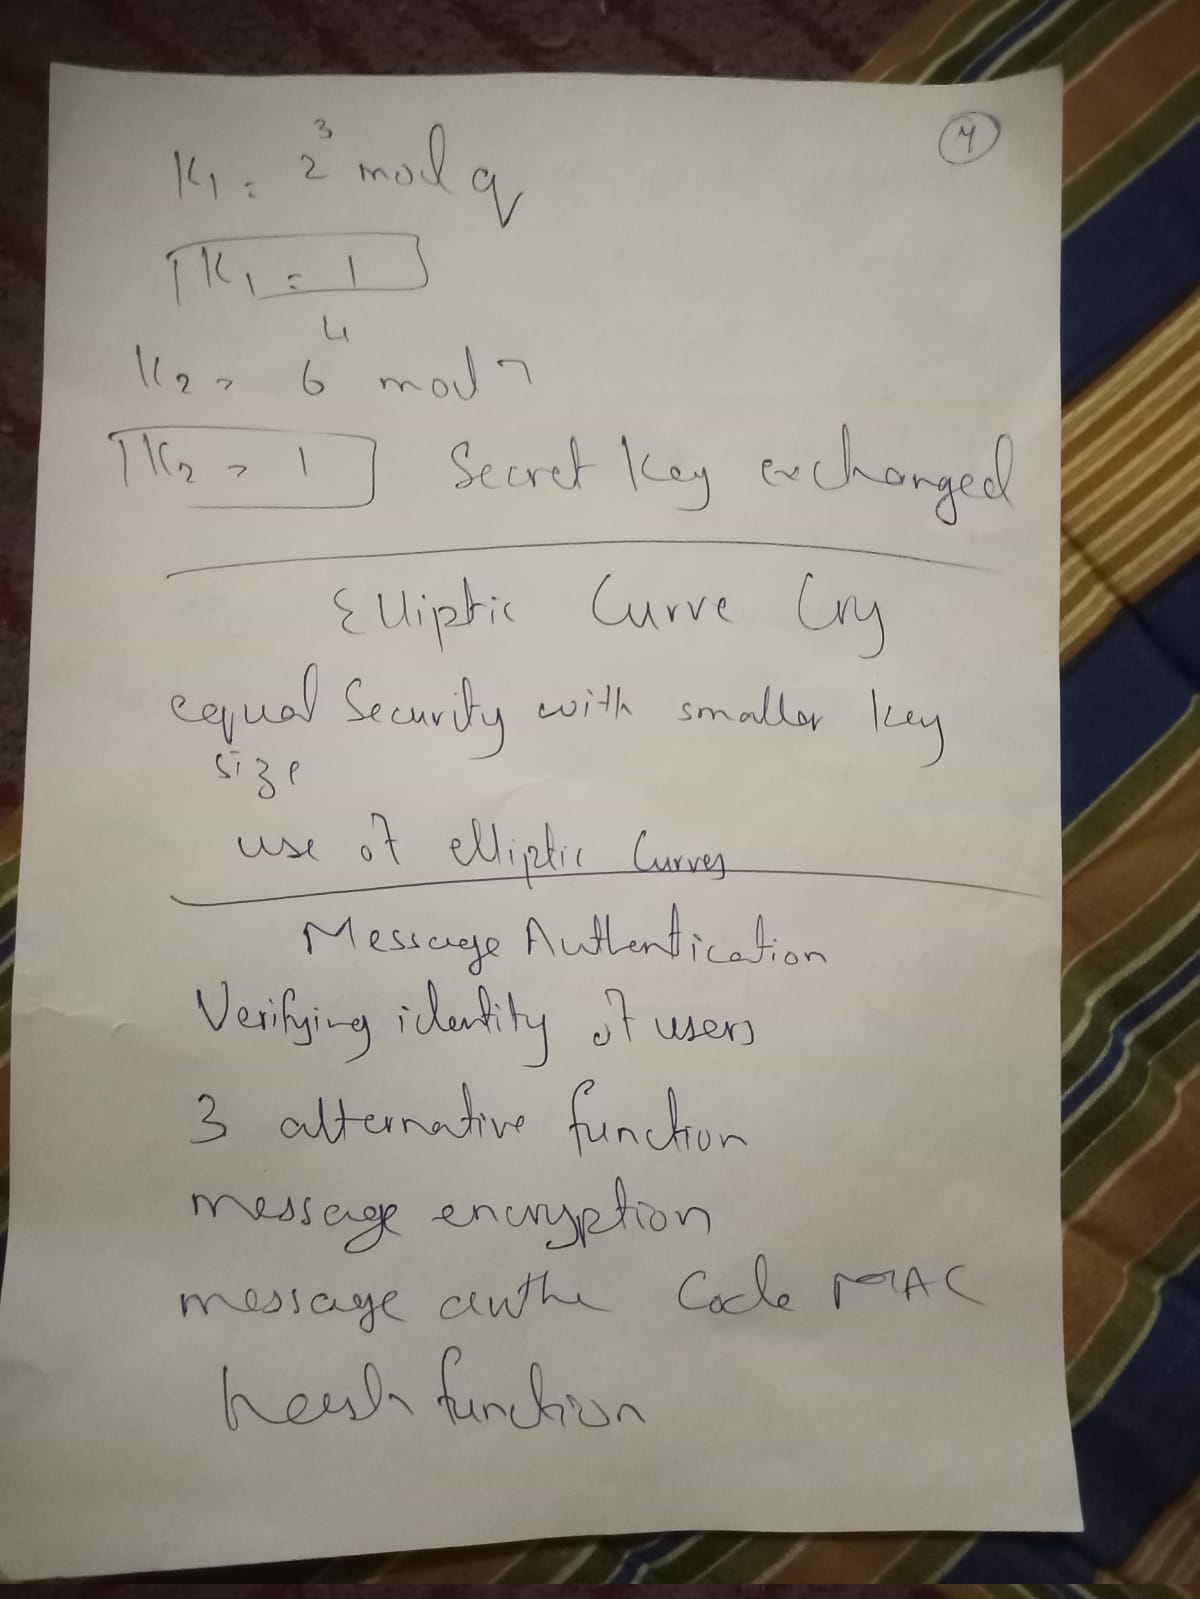 4
K1 = 2^3 mod q
K1 = 1
K2 = 6^4 mod 7
K2 = 1 Secret key exchanged
Elliptic Curve Cry
equal Security with smaller key
size
use of elliptic Curves
Message Authentication
Verifying identity of users
3 alternative function
message encryption
message authe Code MAC
hash function